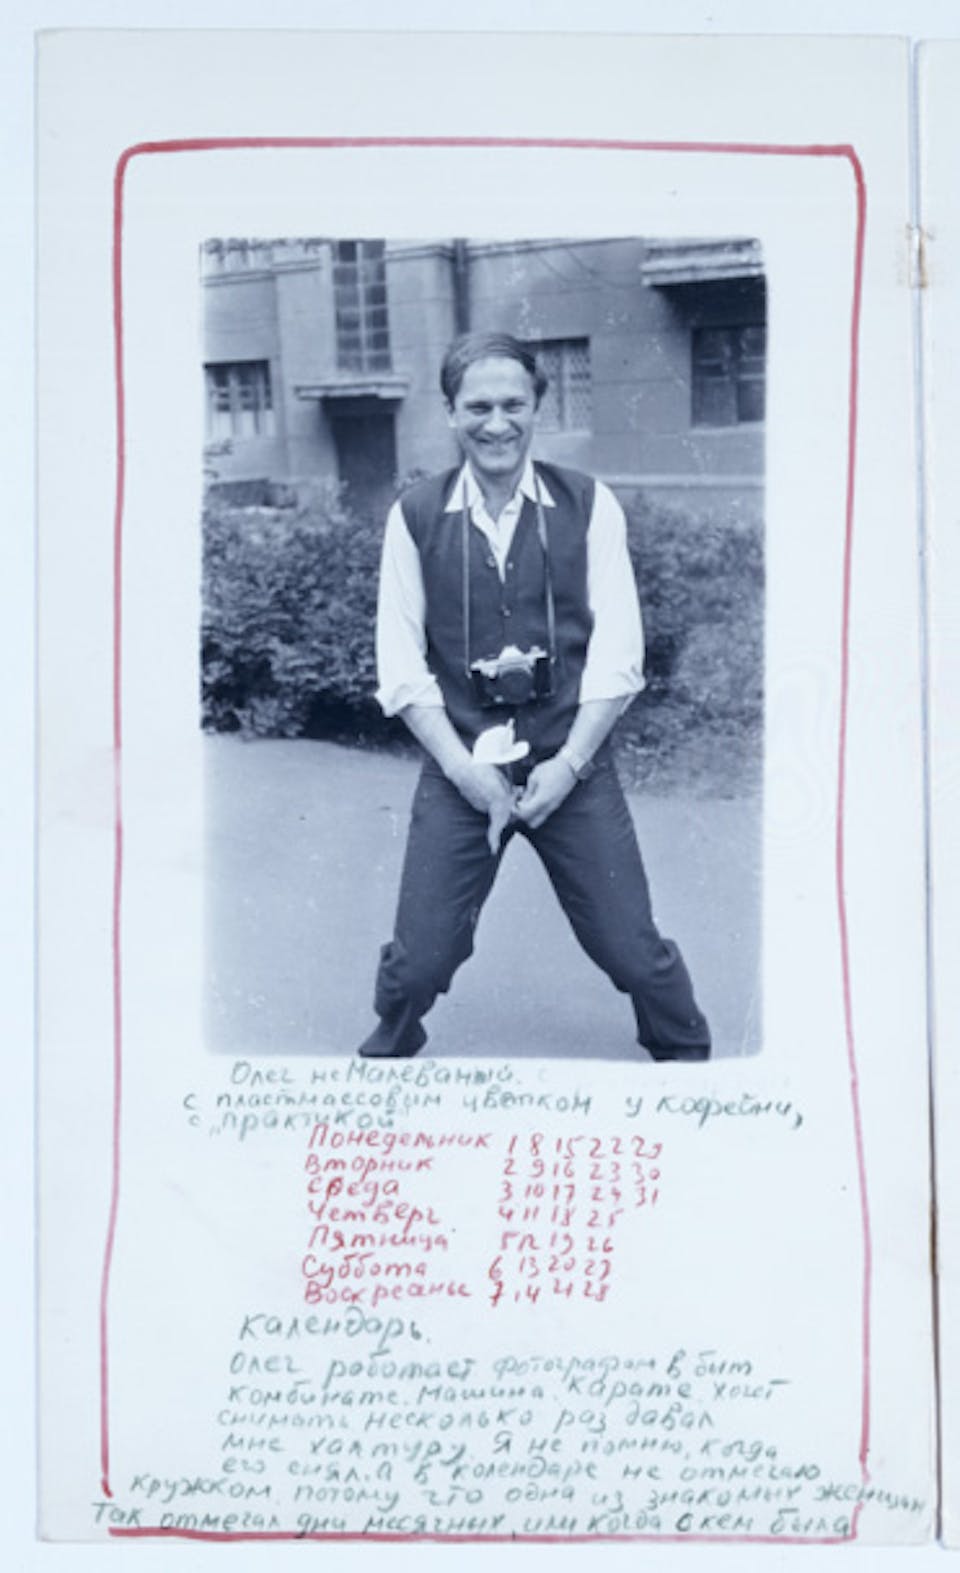 Олег неМалеваный.
с пластмассовым цветком у кофейни,
с „практикой"
Понедельник 1 8 15 22 29
Вторник 2 9 16 23 30
Среда 3 10 17 24 31
Четверг 4 11 18 25
Пятница 5 12 19 26
Суббота 6 13 20 27
Воскресанье 7 14 21 28
Календарь.
Олег работает фотографом в быт
комбинате. Машина. Карате. хочет
снимать несколько раз давал
мне халтуру. Я не помню, когда
его снял. А в колендаре не отмечаю
кружком, потому что одна из знакомых женщин
Так отмечал дни месячных, или когда с кем была